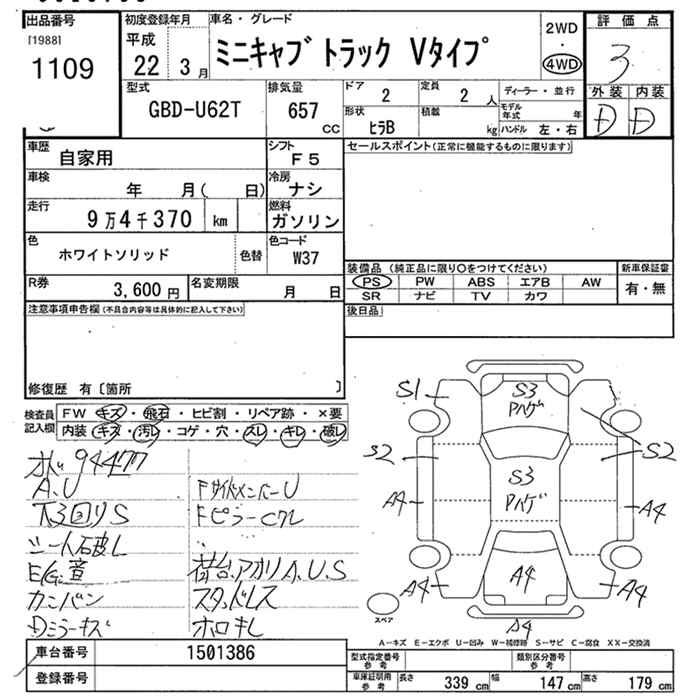 出品番号
[1988]
1109
初度登録年月
平成
22 3月
車名・グレード
ミニキャブ トラック Vタイプ
2WD
・
4WD
評価点
3
外装 内装
D D
型式
GBD-U62T
排気量
657
CC
ドア
2
定員
2 人
形状
ヒラB
積載
kg
ディーラー・並行
モデル年式 年
ハンドル 左・右
車歴
自家用
シフト
F5
車検
年 月( 日)
冷房
ナシ
走行
9万4千370 km
燃料
ガソリン
色
ホワイトソリッド
色替
色コード
W37
R券
3,600円
名変期限
月 日
セールスポイント(正常に機能するものに限ります)
装備品 (純正品に限り〇をつけてください)
PS PW ABS エアB AW
SR ナビ TV カワ
新車保証書
有・無
後日品
注意事項申告欄(不具合内容等は具体的に記入して下さい)
修復歴 有〔箇所 〕
検査員記入欄
FW キズ・飛石・ヒビ割・リペア跡・×要
内装 キズ・汚レ・コゲ・穴・スレ・キレ・破レ
94477
A.U
下3回リS
シート破レ
E/G音
カンバン
Dミラーキズ
FサイドメンバーU
Fピラー
荷台.アオリA.U.S
スタッドレス
ホロキレ
S1
S3
Pハゲ
S2
S2
S3
Pハゲ
A4
A4
A4
A4
A4
A4
スペア
A-キズ E-エクボ U-凹み W-補修跡 S-サビ C-腐食 XX-交換済
車台番号
1501386
登録番号
型式指定番号
参考
類別区分番号
参考
車庫証明用
参考
長さ 339 cm
幅 147 cm
高さ 179 cm